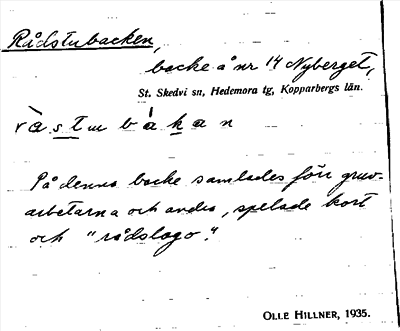 Rådstubacken,
backe å nr 14 Nyberget,
St. Skedvi sn, Hedemora tg, Kopparbergs län.
På denna backe samlades förr gruv-
arbetarna och andra, spelade kort
och "rådslogo".
OLLE HILLNER, 1935.